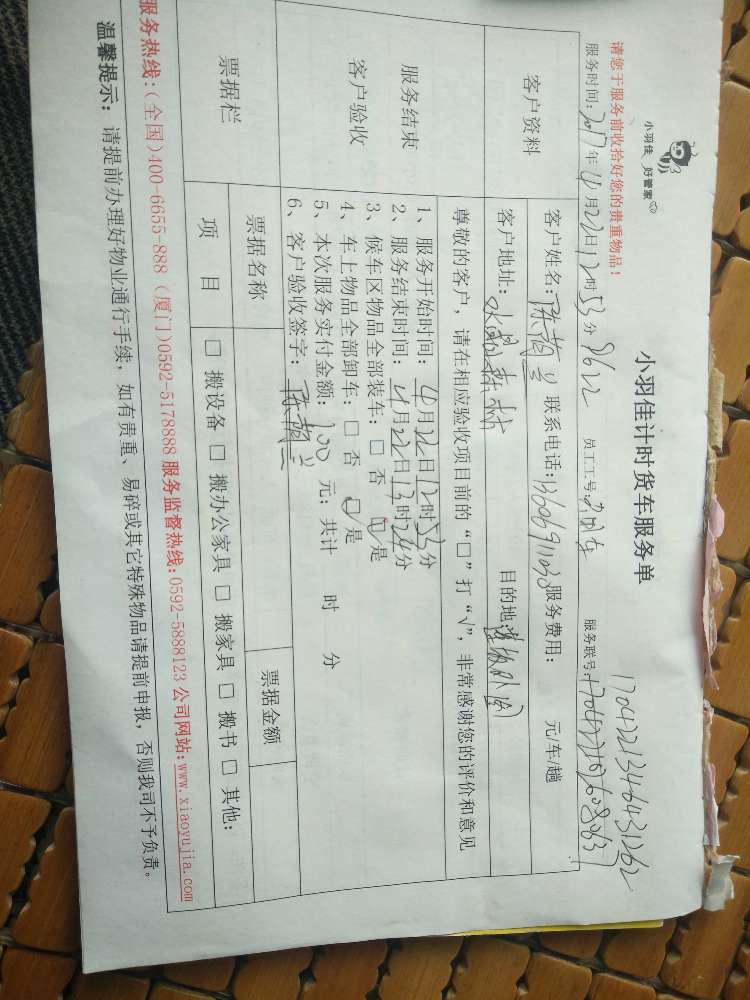 小羽佳 好管家
小羽佳计时货车服务单
请您于服务前收拾好您的贵重物品！
17042213464631262
服务时间：2017年4月22日12时53分 8622 员工工号： 服务联号：
客户资料
客户姓名： 联系电话：13606911038 服务费用： 元/车/趟
客户地址：水晶森林 目的地：
服务结束
客户验收
尊敬的客户，请在相应验收项目前的“□”打“√”，非常感谢您的评价和意见
1、服务开始时间：4月22日12时53分
2、服务结束时间：4月22日13时24分
3、候车区物品全部装车：□ 否 □ 是
4、车上物品全部卸车：□ 否 □ 是
5、本次服务实付金额：200 元；共计 时 分
6、客户验收签字：
票据栏
票据名称
票据金额
项 目
□ 搬设备 □ 搬办公家具 □ 搬家具 □ 搬书 □ 其他：
服务热线：(全国)400-6655-888 (厦门)0592-5178888 服务监督热线：0592-5888123 公司网站：www.xiaoyujia.com
温馨提示：请提前办理好物业通行手续，如有贵重、易碎或其它特殊物品请提前申报，否则我司不予负责。